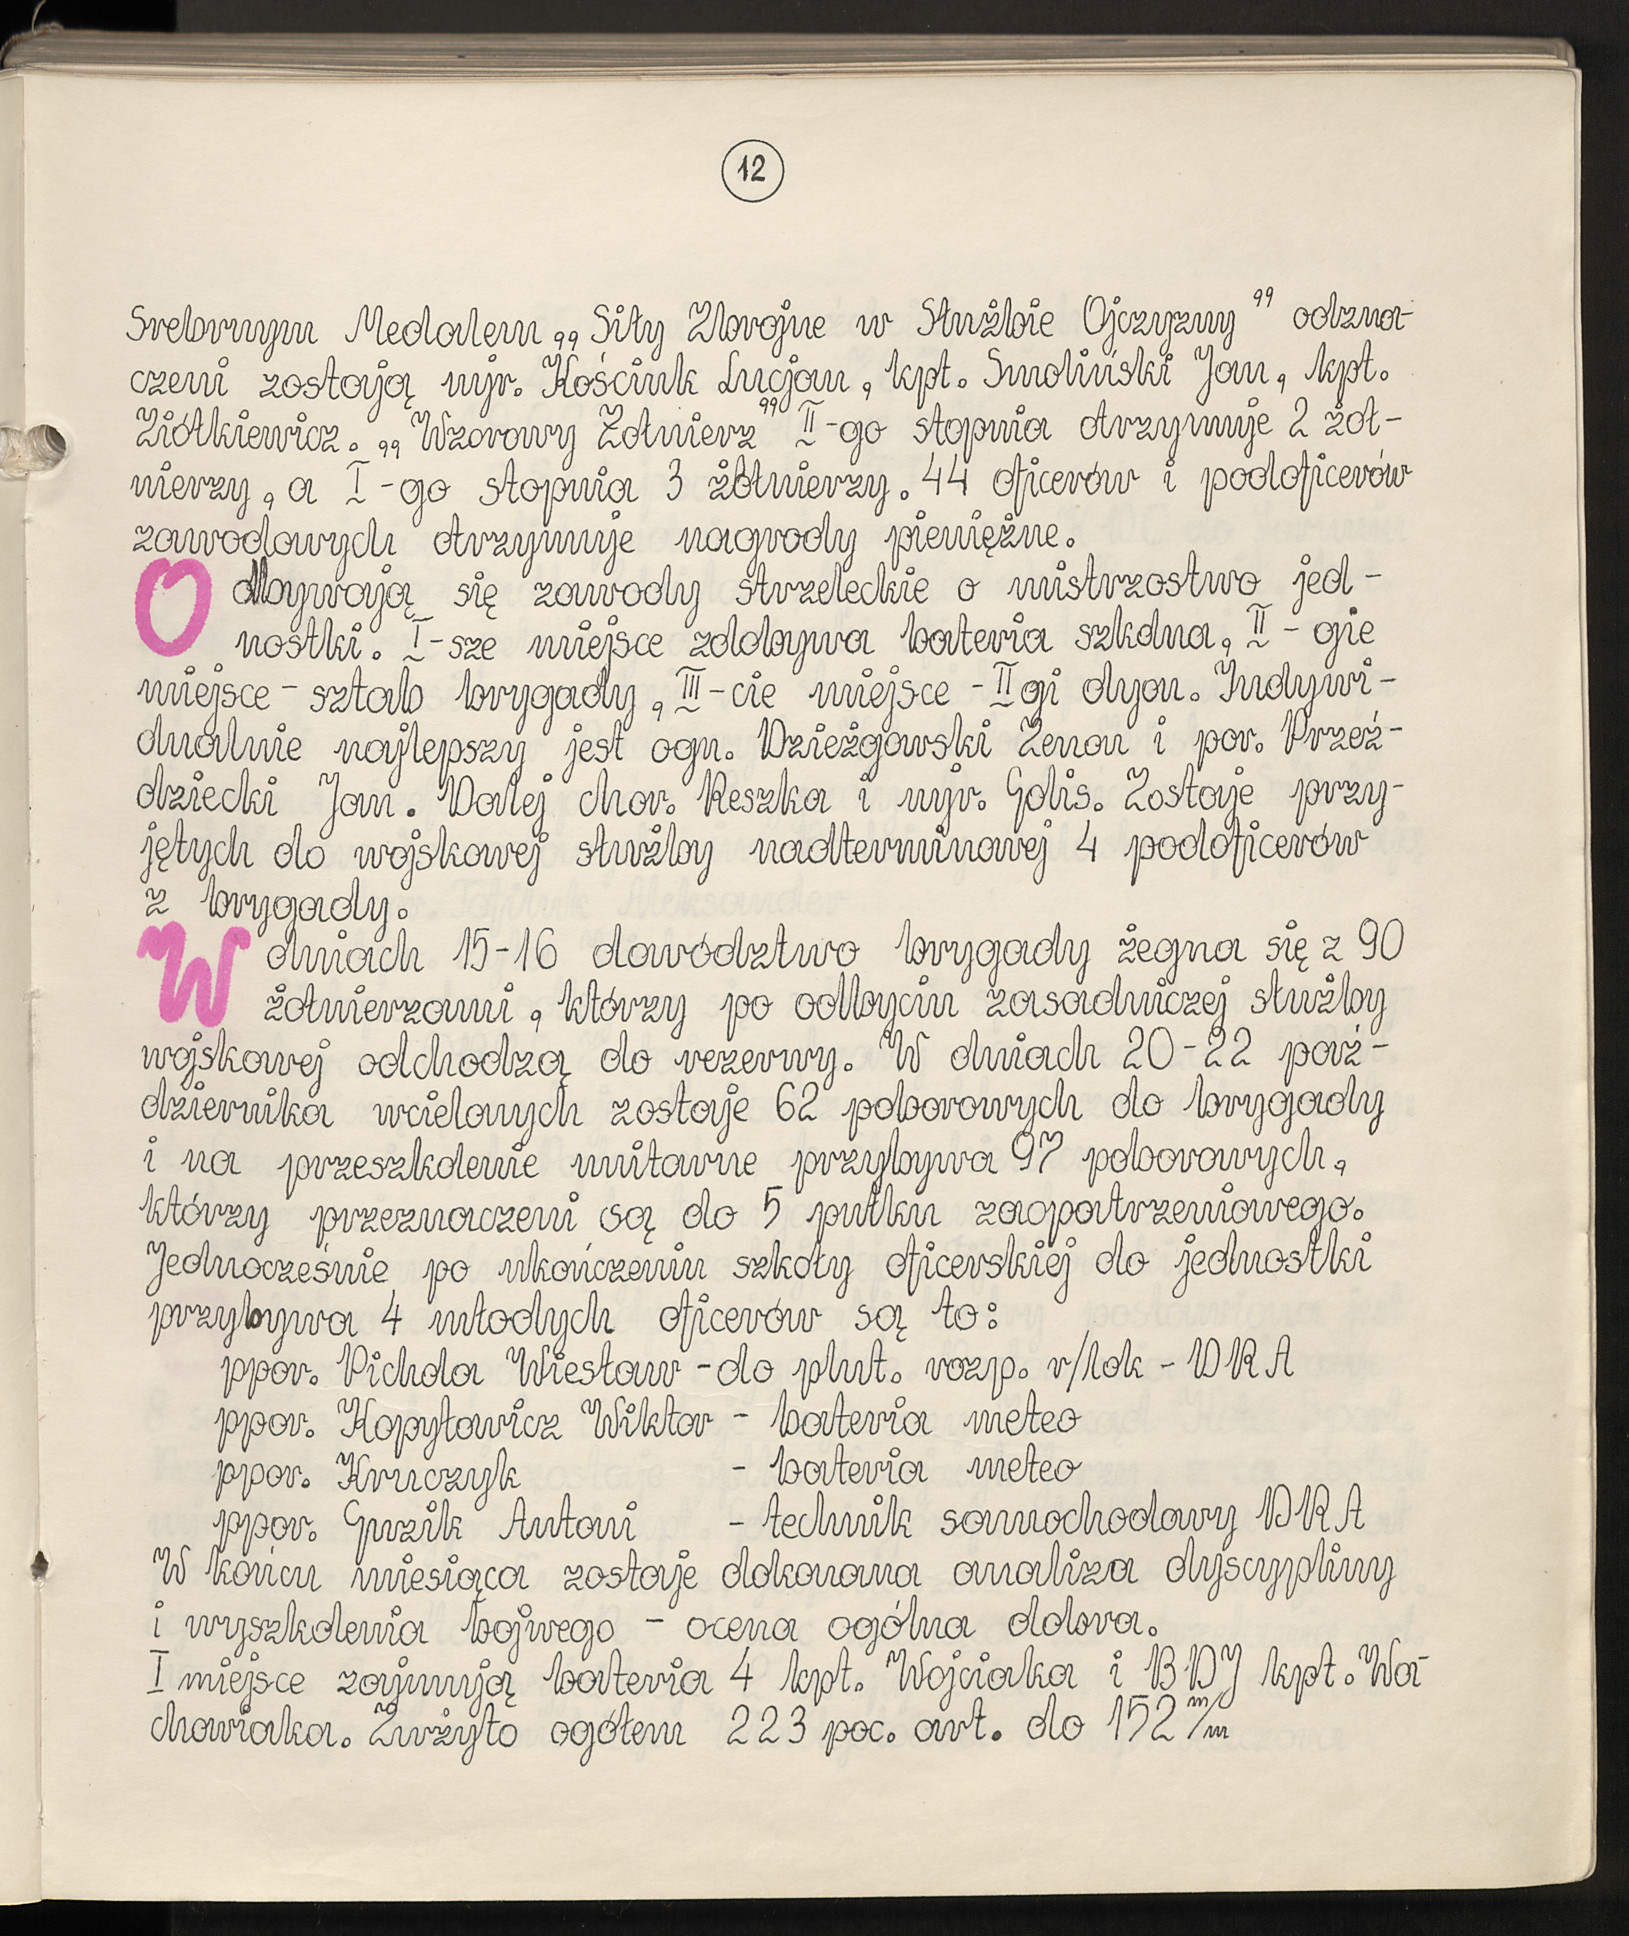 12
Srebrnym Medalem „Siły Zbrojne w Służbie Ojczyzny” odzna-
czeni zostają mjr. Kościuk Lucjan, kpt. Smoliński Jan, kpt.
Ziółkiewicz. „Wzorowy Żołnierz” II-go stopnia otrzymuje 2 żoł-
nierzy, a I-go stopnia 3 żółnierzy. 44 oficerów i podoficerów
zawodowych otrzymuje nagrody pieniężne.
Odbywają się zawody strzeleckie o mistrzostwo jed-
nostki. I-sze miejsce zdobywa bateria szkolna, II-gie
miejsce - sztab brygady, III-cie miejsce - IIgi dyon. Indywi-
dualnie najlepszy jest ogn. Dzieżgowski Zenon i por. Przeź-
dziecki Jan. Dalej chor. Reszka i mjr. Golis. Zostaje przy-
jętych do wojskowej służby nadterminowej 4 podoficerów
z brygady.
W dniach 15-16 dowództwo brygady żegna się z 90
żołnierzami, którzy po odbyciu zasadniczej służby
wojskowej odchodzą do rezerwy. W dniach 20-22 paź-
dziernika wcielonych zostaje 62 poborowych do brygady
i na przeszkolenie unitarne przybywa 97 poborowych,
którzy przeznaczeni są do 5 pułku zaopatrzeniowego.
Jednocześnie po ukończeniu szkoły oficerskiej do jednostki
przybywa 4 młodych oficerów są to:
ppor. Pichola Wiesław - do plut. rozp. r/lok - DRA
ppor. Kopytowicz Wiktor - bateria meteo
ppor. Kruczyk - bateria meteo
ppor. Guzik Antoni - technik samochodowy DRA
W końcu miesiąca zostaje dokonana analiza dyscypliny
i wyszkolenia bojwego - ocena ogólna dobra.
I miejsce zajmują bateria 4 kpt. Wojciaka i BDJ kpt. Wa-
chowiaka. Zużyto ogółem 223 poc. art. do 152 m/m